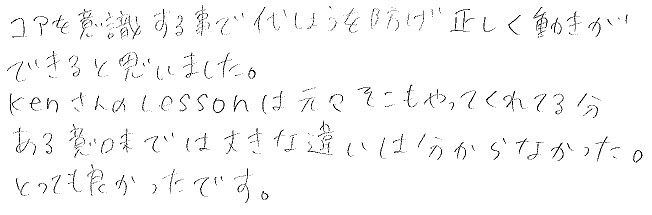 コアを意識する事で代しょうを防げ正しく動きが
できると思いました。
kenさんのLessonは元々そこもやってくれてる分
ある意味では大きな違いは分からなかった。
とっても良かったです。